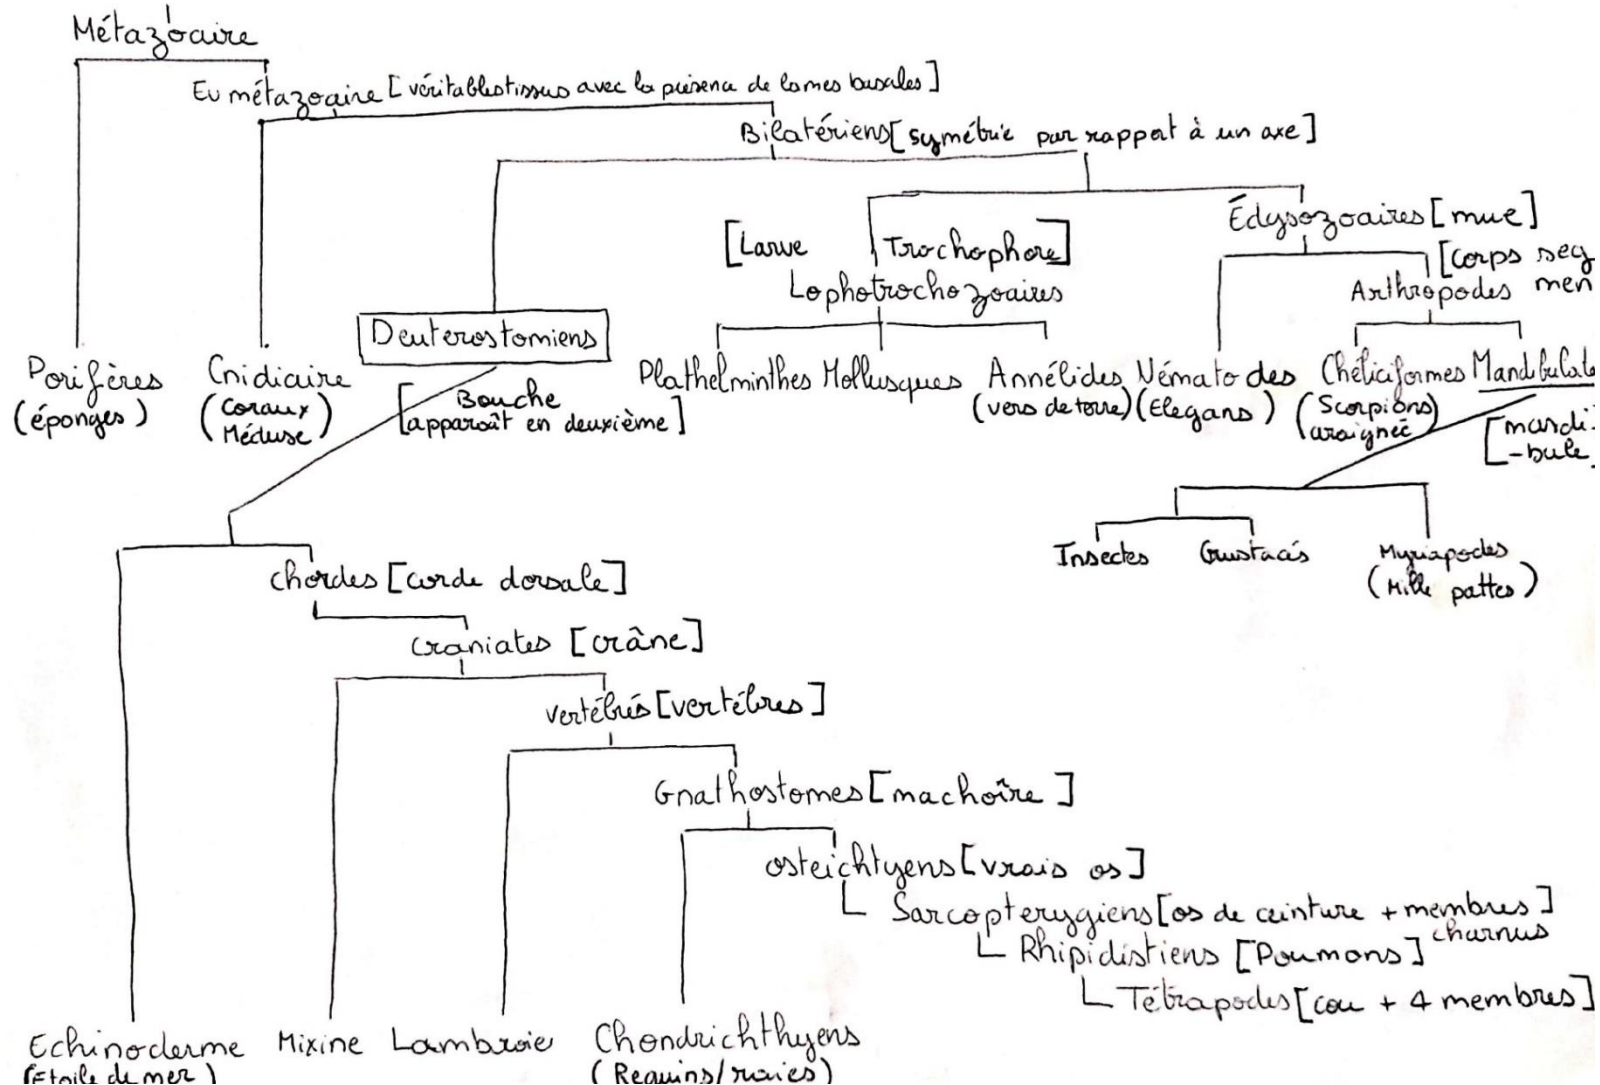 Métazoaire
Eumétazoaire [véritables tissus avec la présence de lames basales]
Bilatériens [symétrie par rapport à un axe]
Édysozoaires [mue]
[Larve Trochophore]
Lophotrochozoaires
[corps seg
men
Arthropodes
Deuterostomiens
Porifères
(éponges)
Cnidiaire
(Coraux
Méduse)
[Bouche
apparaît en deuxième]
Plathelminthes Mollusques Annélides Nématodes Chéliciformes Mandibulate
(vers de terre) (Elegans) (Scorpions
araignée)
[mandi-
-bule
Insectes Crustacés Myriapodes
(Mille pattes)
chordes [corde dorsale]
craniates [crâne]
vertébrés [vertébres]
Gnathostomes [machoîre]
osteichtyens [vrais os]
Sarcopterygiens [os de ceinture + membres]
charnus
Rhipidistiens [Poumons]
Tétrapodes [cou + 4 membres]
Echinoderme Mixine Lambroie Chondrichthyens
(Etoile de mer) (Requins/raies)